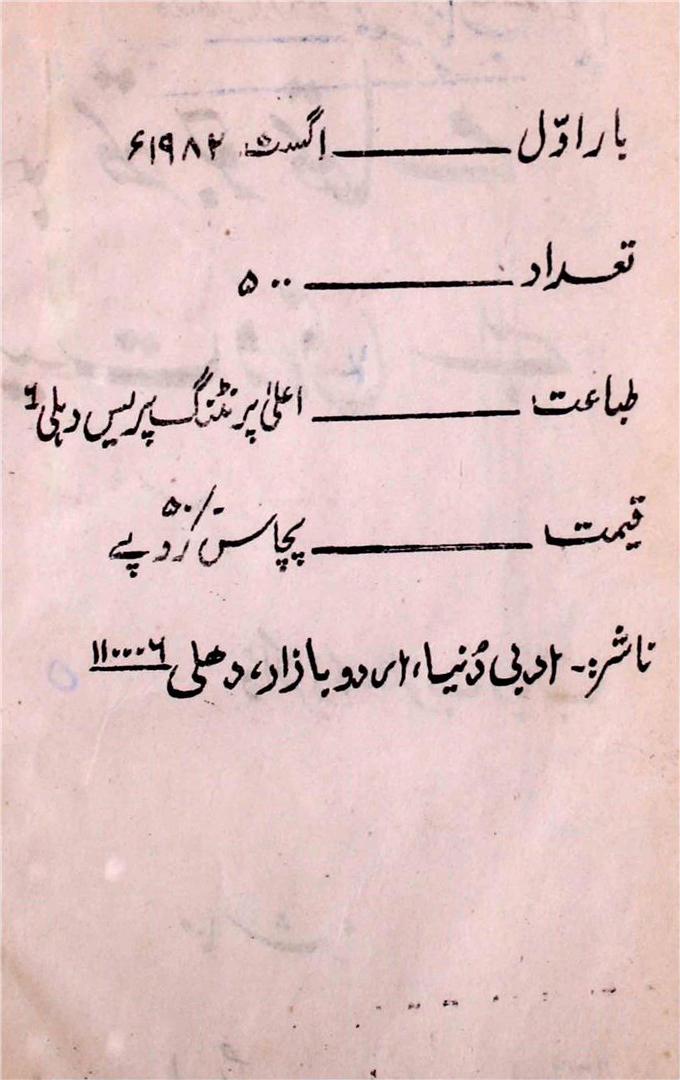 بار اوّل ــــــــــ اگست ۱۹۸۲ء
تعداد ــــــــــ ۵۰۰
طباعت ــــــــــ اعلیٰ پرنٹنگ پریس دہلی ۶
قیمت ــــــــــ پچاس روپے ۵۰/-
ناشر:۔ ادبی دُنیا، اردو بازار، دھلی ۱۱۰۰۰۶